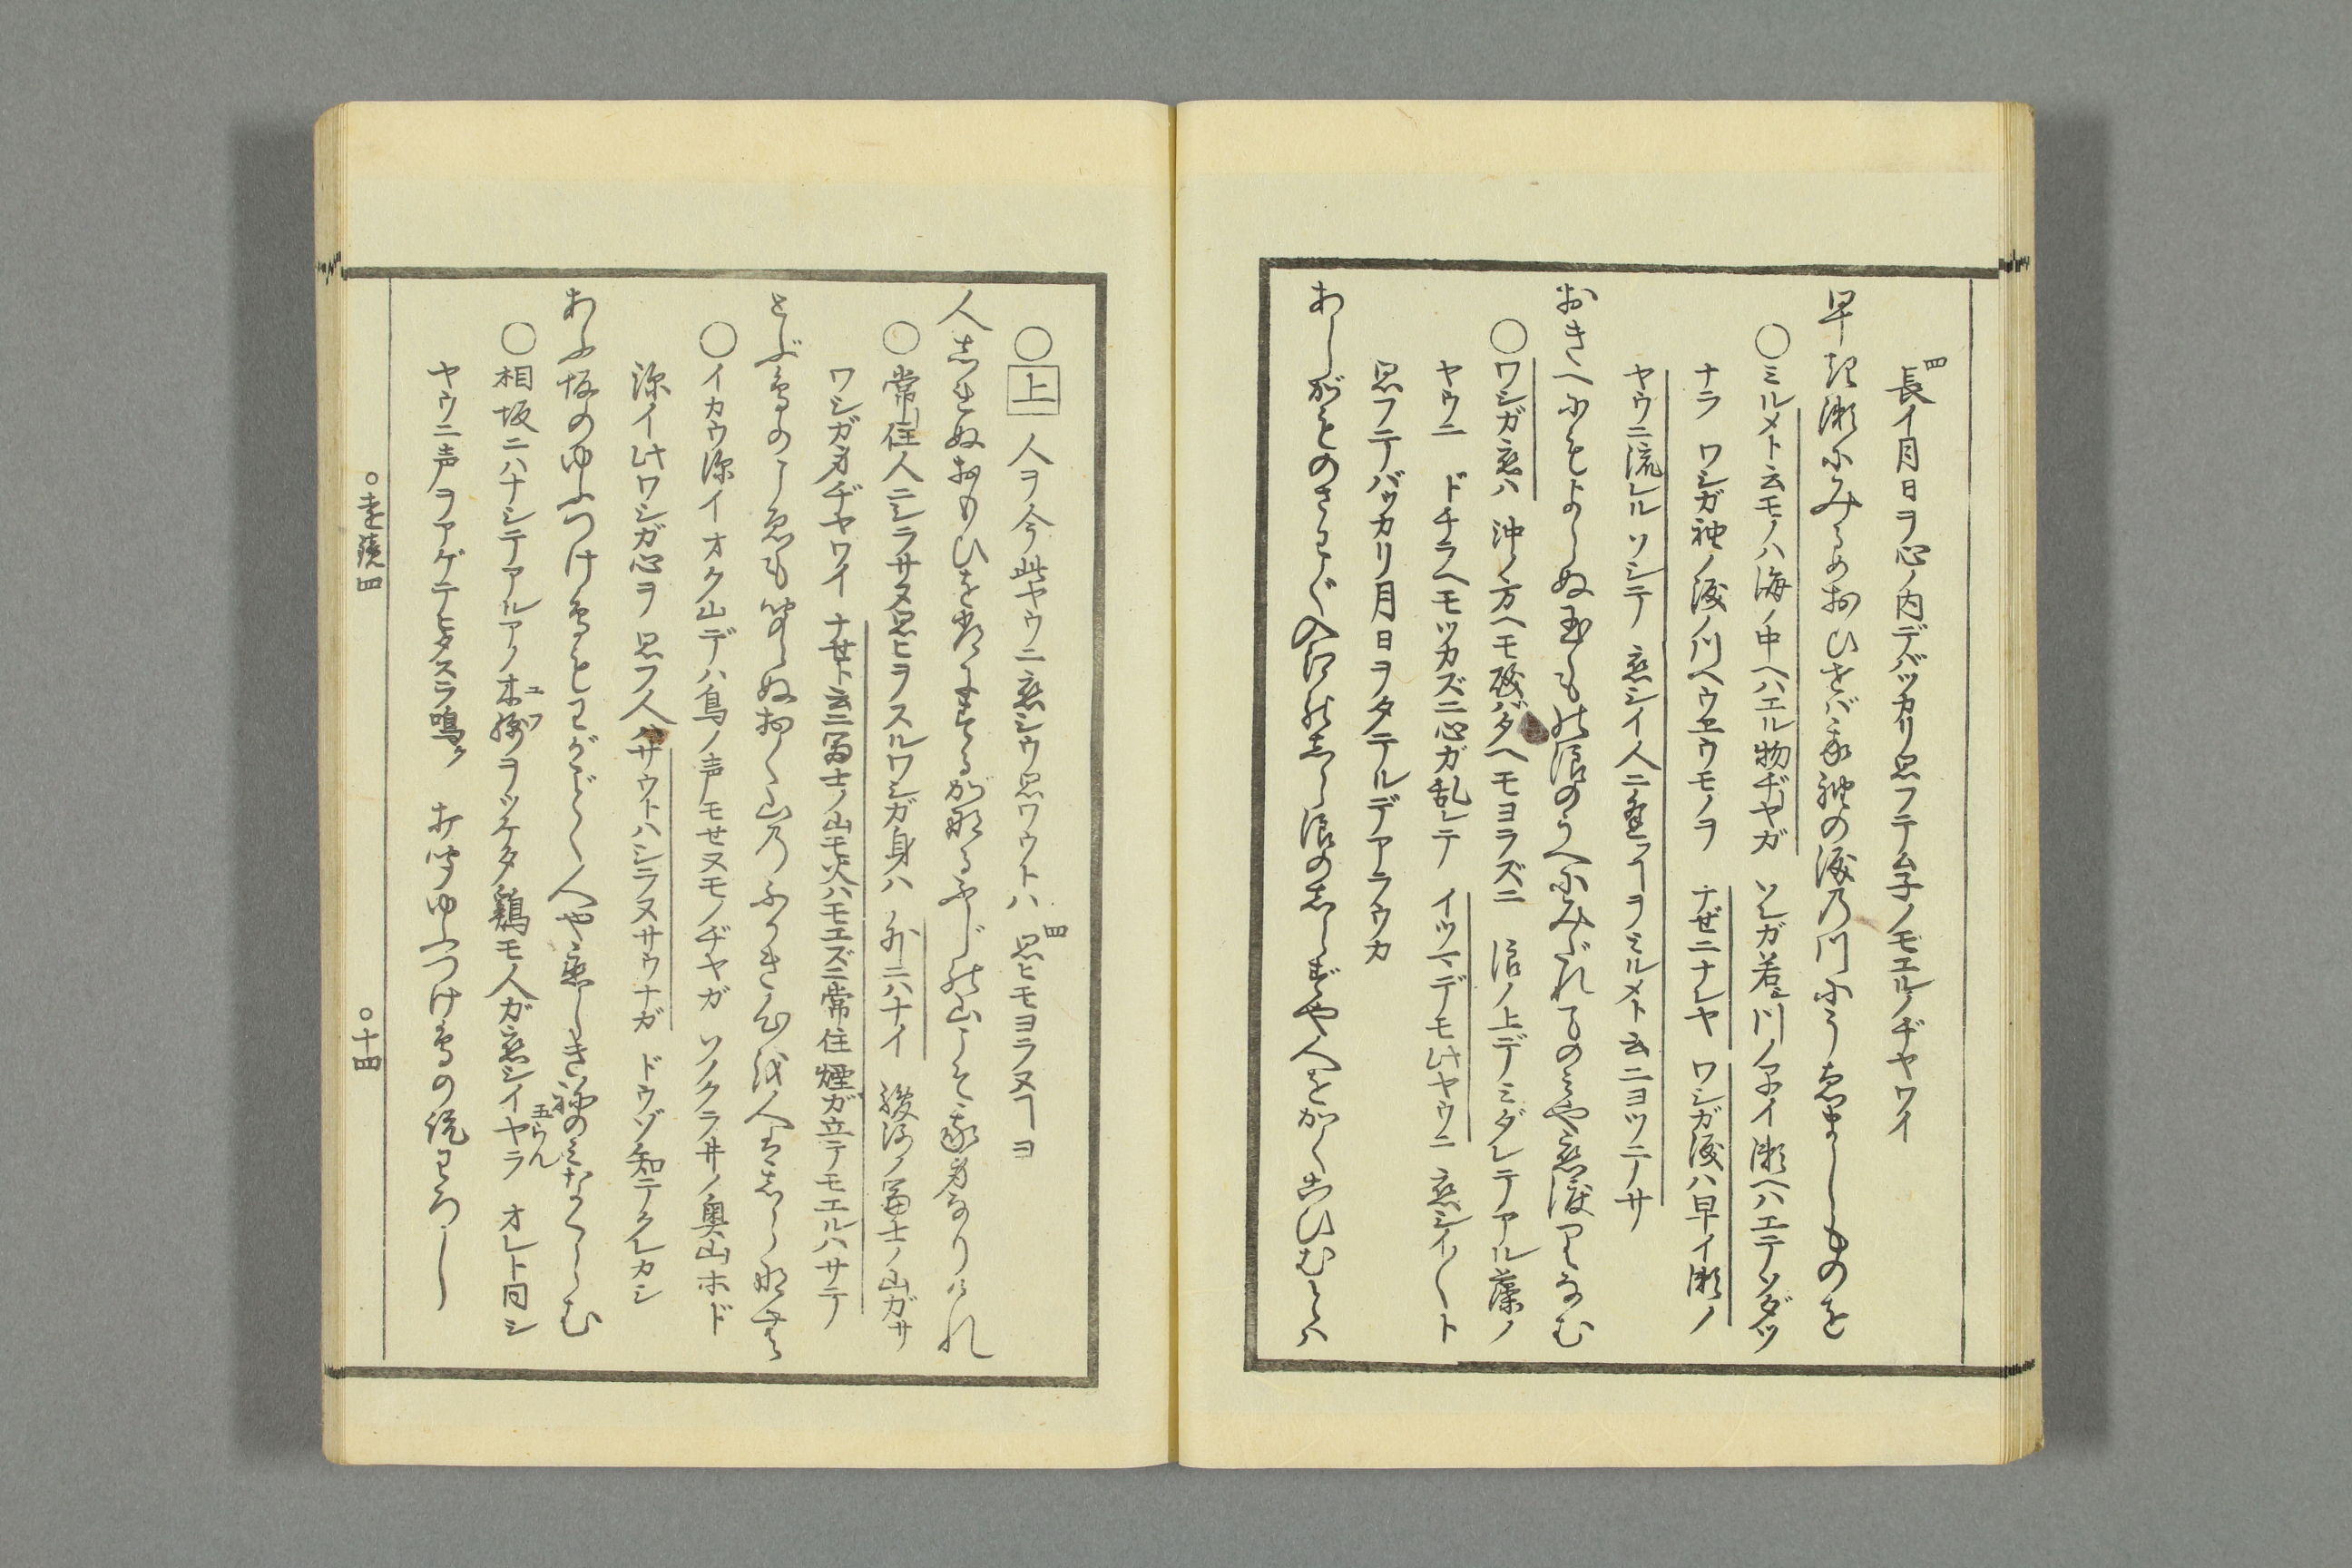 四
長イ月日ヲ心ノ内デバッカリ思フテ胸ノモエルノヂヤワイ
早き瀬にみるめおひせば我袖の涙乃川にうゑましものを
○ミルメト云モノハ海ノ中ヘハエル物ヂヤガ ソレガ若シ川ノ早イ瀬ヘハエテソダツ
ナラ ワシガ袖ノ涙ノ川ヘウヱウモノヲ ナゼニナレヤ ワシガ涙ハ早イ瀬ノ
ヤウニ流レル ソシテ 恋シイ人ニ逢フヿヲミルメト云ニヨツテノサ
おきへにもよらぬ玉もの浪のうへにみだれてのみや恋渡りなむ
○ワシガ恋ハ 沖ノ方ヘモ磯バダヘモヨラズニ 浪ノ上デミダレテアル藻ノ
ヤウニ ドチラヘモツカズニ心ガ乱レテ イツマデモ此ヤウニ 恋シイ〳〵ト
思フテバッカリ月日ヲタテルデアラウカ
あしがものさわぐ入江の志ら浪の志らずや人をかくこひむとハ
○上 人ヲ今此ヤウニ恋シウ思ワウトハ 思ヒモヨラヌヿヨ
四
人志れぬおもひを常にするが那るふじの山こそ我身なりけれ
○常住人ニシラサヌ思ヒヲスルワシガ身ハ 外ニハナイ 駿河ノ冨士ノ山ガサ
ワシガ身ヂヤワイ ナゼト云ニ冨士ノ山モ火ハモエズニ常住煙ガ立テモエルハサテ
とぶ鳥のこゑも聞えぬおく山乃ふかき心を人は志ら那む
○イカウ深イオク山デハ鳥ノ声モセヌモノヂヤガ ソノクラヰノ奥山ホド
深イ此ワシガ心ヲ 思フ人ハサウトハシラヌサウナガ ドウゾ知テクレカシ
あふ坂のゆふつけ鳥もわがごとく人や恋しきねのみなくらむ
○相坂ニハナシテアルアノ木綿ヲツケタ鶏モ人ガ恋シイヤラ オレト同シ
ユフ
ヤウニ声ヲアゲテヒタスラ鳴ク 打聞ゆふつけ鳥の説わろし
○遠鏡四
○十四